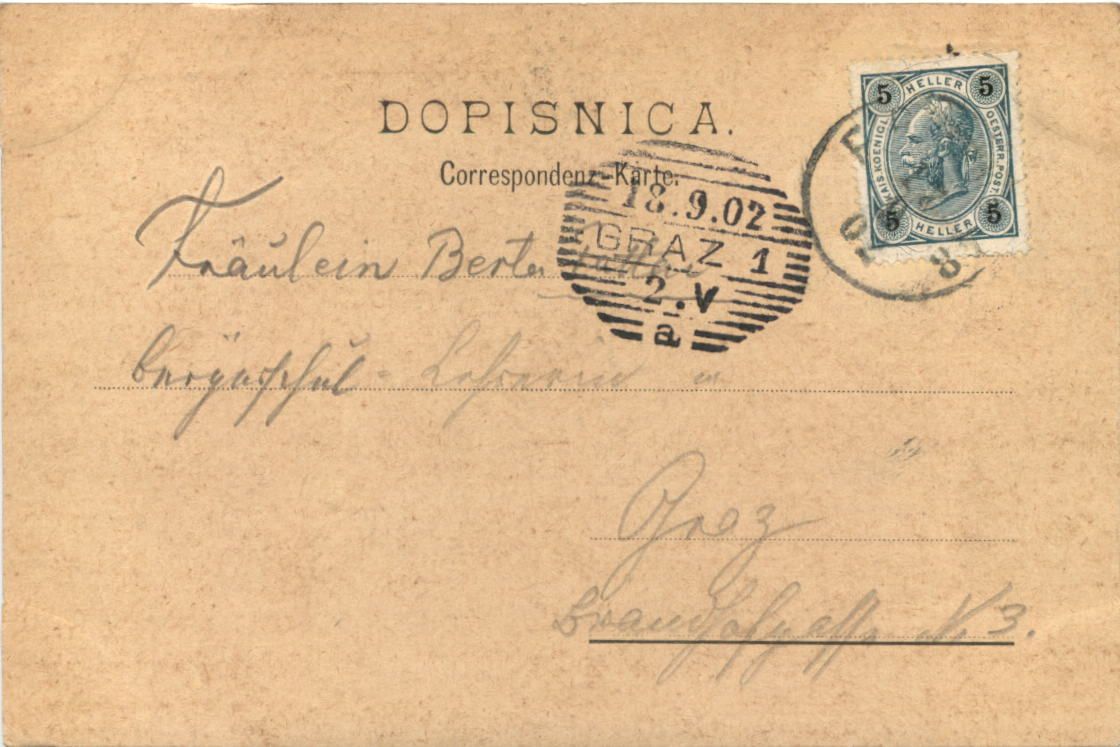 DOPISNICA.
Correspondenz-Karte.
5 HELLER 5
KAIS. KOENIGL. OESTERR. POST.
5 HELLER 5
18.9.02
GRAZ 1
2.V
a
Fräulein Berta
Bürgerschul-Lehrerin in
Graz
Brandhofgasse N. 3.